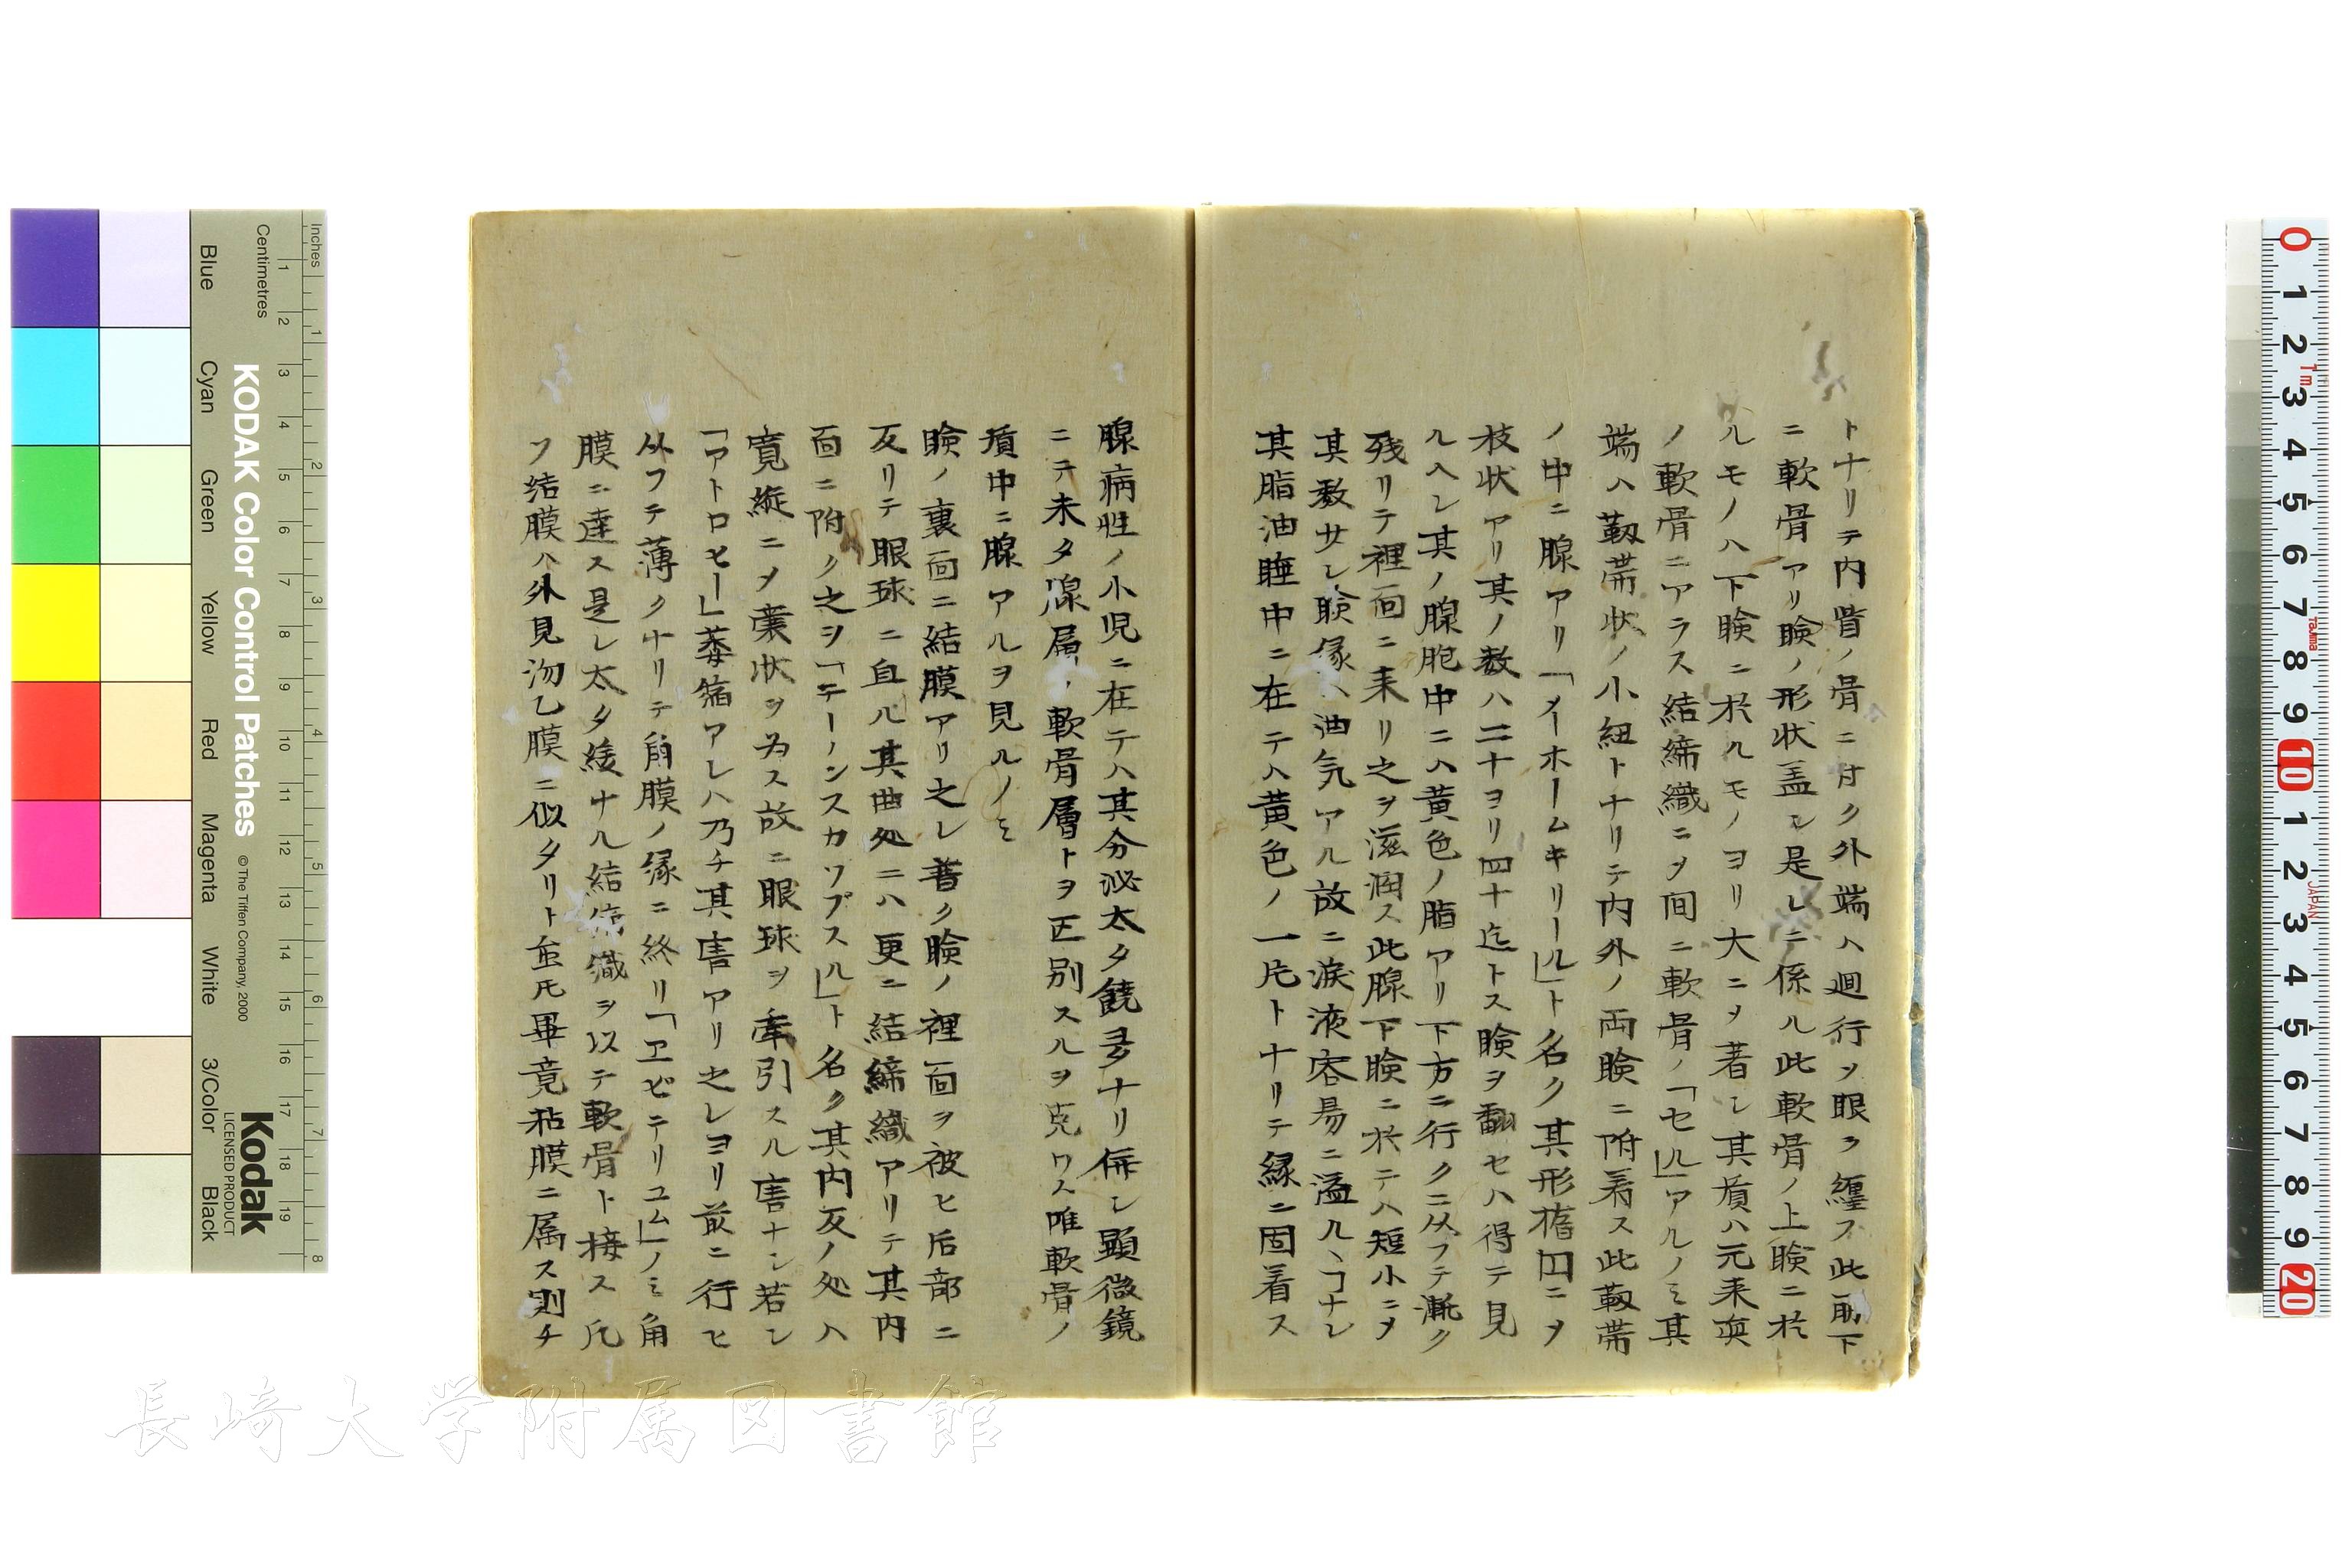 トナリテ内眥ノ骨ニ付ク外端ハ廻行ソ眼ヲ纏フ此筋下
ニ軟骨アリ瞼ノ形状盖シ是レニ係ル此軟骨ノ上瞼ニ於
ルモノハ下瞼ニ於ルモノヨリ大ニヲ著シ其質ハ元来眞
ノ軟骨ニアラス結締織ニヲ間ニ軟骨ノ「セル」アルノミ其
端ハ靱帯状ノ小紐トナリテ内外ノ両瞼ニ附着ス此靱帯
ノ中ニ腺アリ「メーホームキリール」ト名ク其形楕囙ニヲ
枝状アリ其ノ数ハ二十ヨリ四十迄トス瞼ヲ翻セハ得テ見
ルヘシ其ノ腺胞中ニハ黄色ノ脂アリ下方ニ行クニ从フテ漸ク
残リテ裡面ニ来リ之ヲ滋潤ス此腺下瞼ニ於テハ短小ニヲ
其数少シ瞼縁ハ油気アル故ニ涙液容易ニ溢ルヽヿナシ
其脂油腫中ニ在テハ黄色ノ一片トナリテ縁ニ固着ス
腺病性ノ小児ニ在テハ其分泌太タ饒多ナリ併シ顕微鏡
ニテ未タ腺層ノ軟骨層トヲ区別スルヲ克ワス唯軟骨ノ
質中ニ腺アルヲ見ルノミ
瞼ノ裏面ニ結膜アリ之レ普ク瞼ノ裡面ヲ被ヒ后部ニ
反リテ眼球ニ亘ル其曲処ニハ更ニ結締織アリテ其内
面ニ附ク之ヲ「テーノンスカツプスル」ト名ク其内反ノ処ハ
寛縦ニヲ嚢状ヲ為ス故ニ眼球ヲ牽引スル害ナシ若シ
「アトロヒー」萎縮アレハ乃チ其害アリ之レヨリ前ニ行ヒ
从フテ薄クナリテ角膜ノ縁ニ終リ「エピテリユム」ノミ角
膜ニ達ス是レ太タ緩ナル結締織ヲ以テ軟骨ト接ス凡
ソ結膜ハ外見沕乙膜ニ似タリト虽𪜈畢竟粘膜ニ属ス則チ
KODAK Color Control Patches
© The Tiffen Company, 2000
Kodak
LICENSED PRODUCT
Inches
Centimetres
Blue
Cyan
Green
Yellow
Red
Magenta
White
3/Color
Black
長崎大学附属図書館